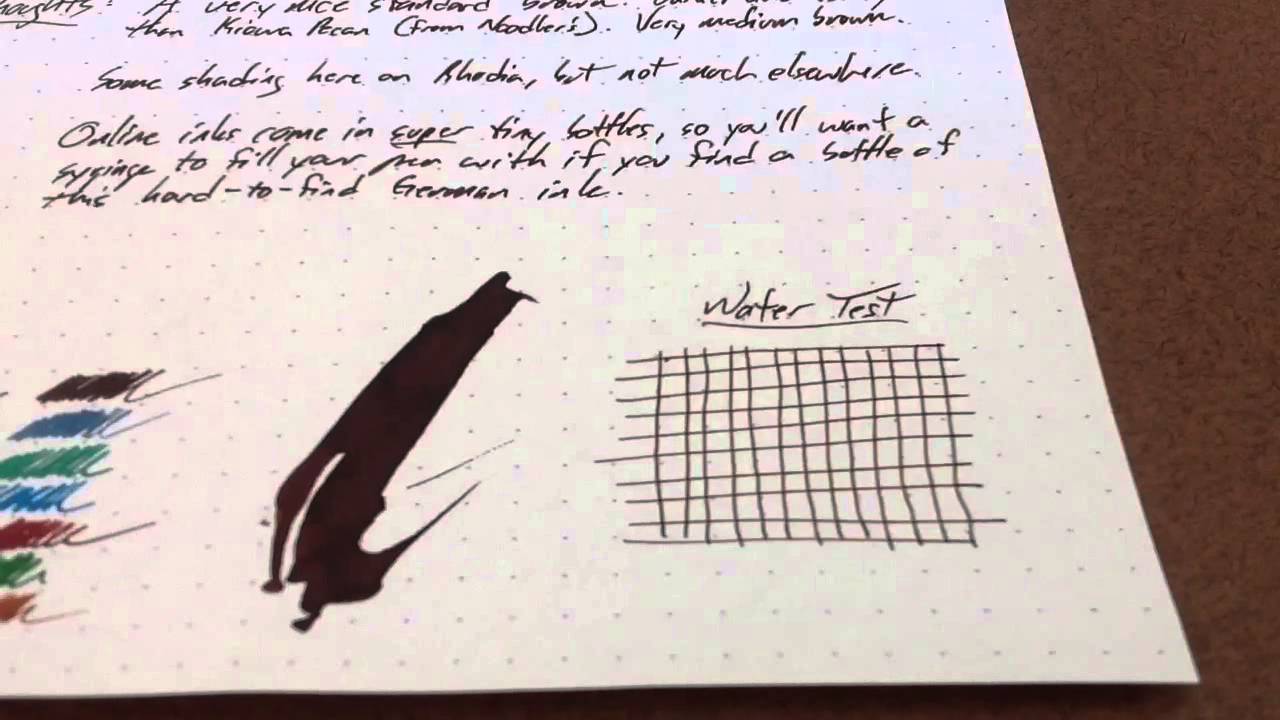 Thoughts: A very nice standard brown.
than Kiowa Pecan (from Noodler's). Very medium brown.
Some shading here on Rhodia, but not much elsewhere.
Online inks come in super tiny bottles, so you'll want a
syringe to fill your pen with if you find a bottle of
this hard-to-find German ink.
Water Test